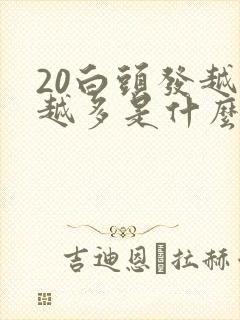 20白頭發越
越多是什麼
吉迪恩 拉赫